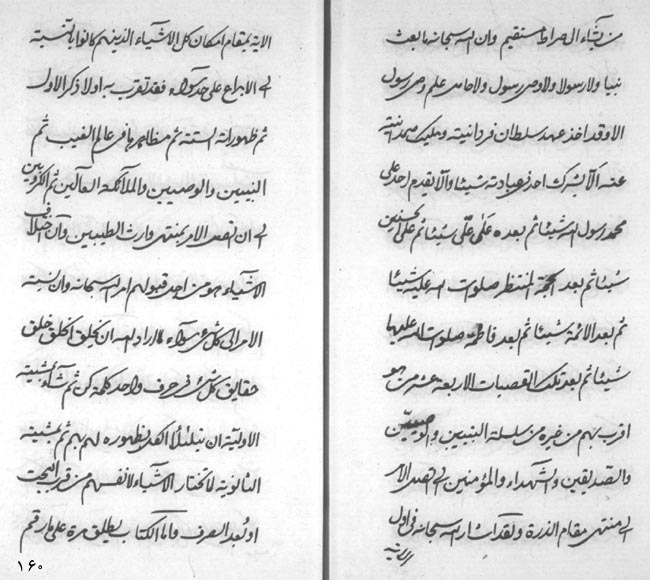 من يشاء الى صراط مستقيم وان الله سبحانه ما بعث
نبيا ولا رسولا ولا وصى رسول ولا حامل علم وصى رسول
الا وقد اخذ عهد سلطان فردانيته ومليك صمدانيته
عنه الا يشرك احد فى عبادته شيئا والا يقدم احد على
محمد رسول الله شيئا ثم بعده على علىّ شيئا ثم على الحسنين
شيئا ثم بعد الحجة المنتظر صلوات الله عليه شيئا
ثم بعد الائمة شيئا ثم بعد فاطمة صلوات الله عليها
شيئا ثم بعد تلك القصبات الاربعة عشر من هو
اقرب بهم من غيره من سلسلة النبيين والوصيين
والصديقين والشهداء والمؤمنين الى ان اتصل الامر
الى منتهى مقام الذرة ولقد اشار الله سبحانه فى اول
الاية بمقام امكان كل الاشياء الذين هم كانوا بالنسبة
الى الابداع على حد سواء فقد تقرب به اولا ذكر الاول
ثم ظهوراته الستة ثم مظاهرها فى عالم الغيب ثم
النبيين والوصيين والملائكة العالين ثم الكروبين
الى ان اتصل الامر بمنتهى وارث الطيبين وان اختلاف
الاشياء هو من اجل قبولهم امر الله سبحانه وان نسبته
الامر الى كل شىء سواء لما اراد الله ان يخلق الخلق خلق
حقايق كل شىء فى حرف واحد كلمة كن ثم شاء بمشيته
الاولية ان الكل بظهوره لهم بهم ثم بمشيته
الثانوية لما تختار الاشياء لانفسهم من قرب البحت
او بعد الصرف واما الكتاب يطلق مرة على ما رقم
١٦٠